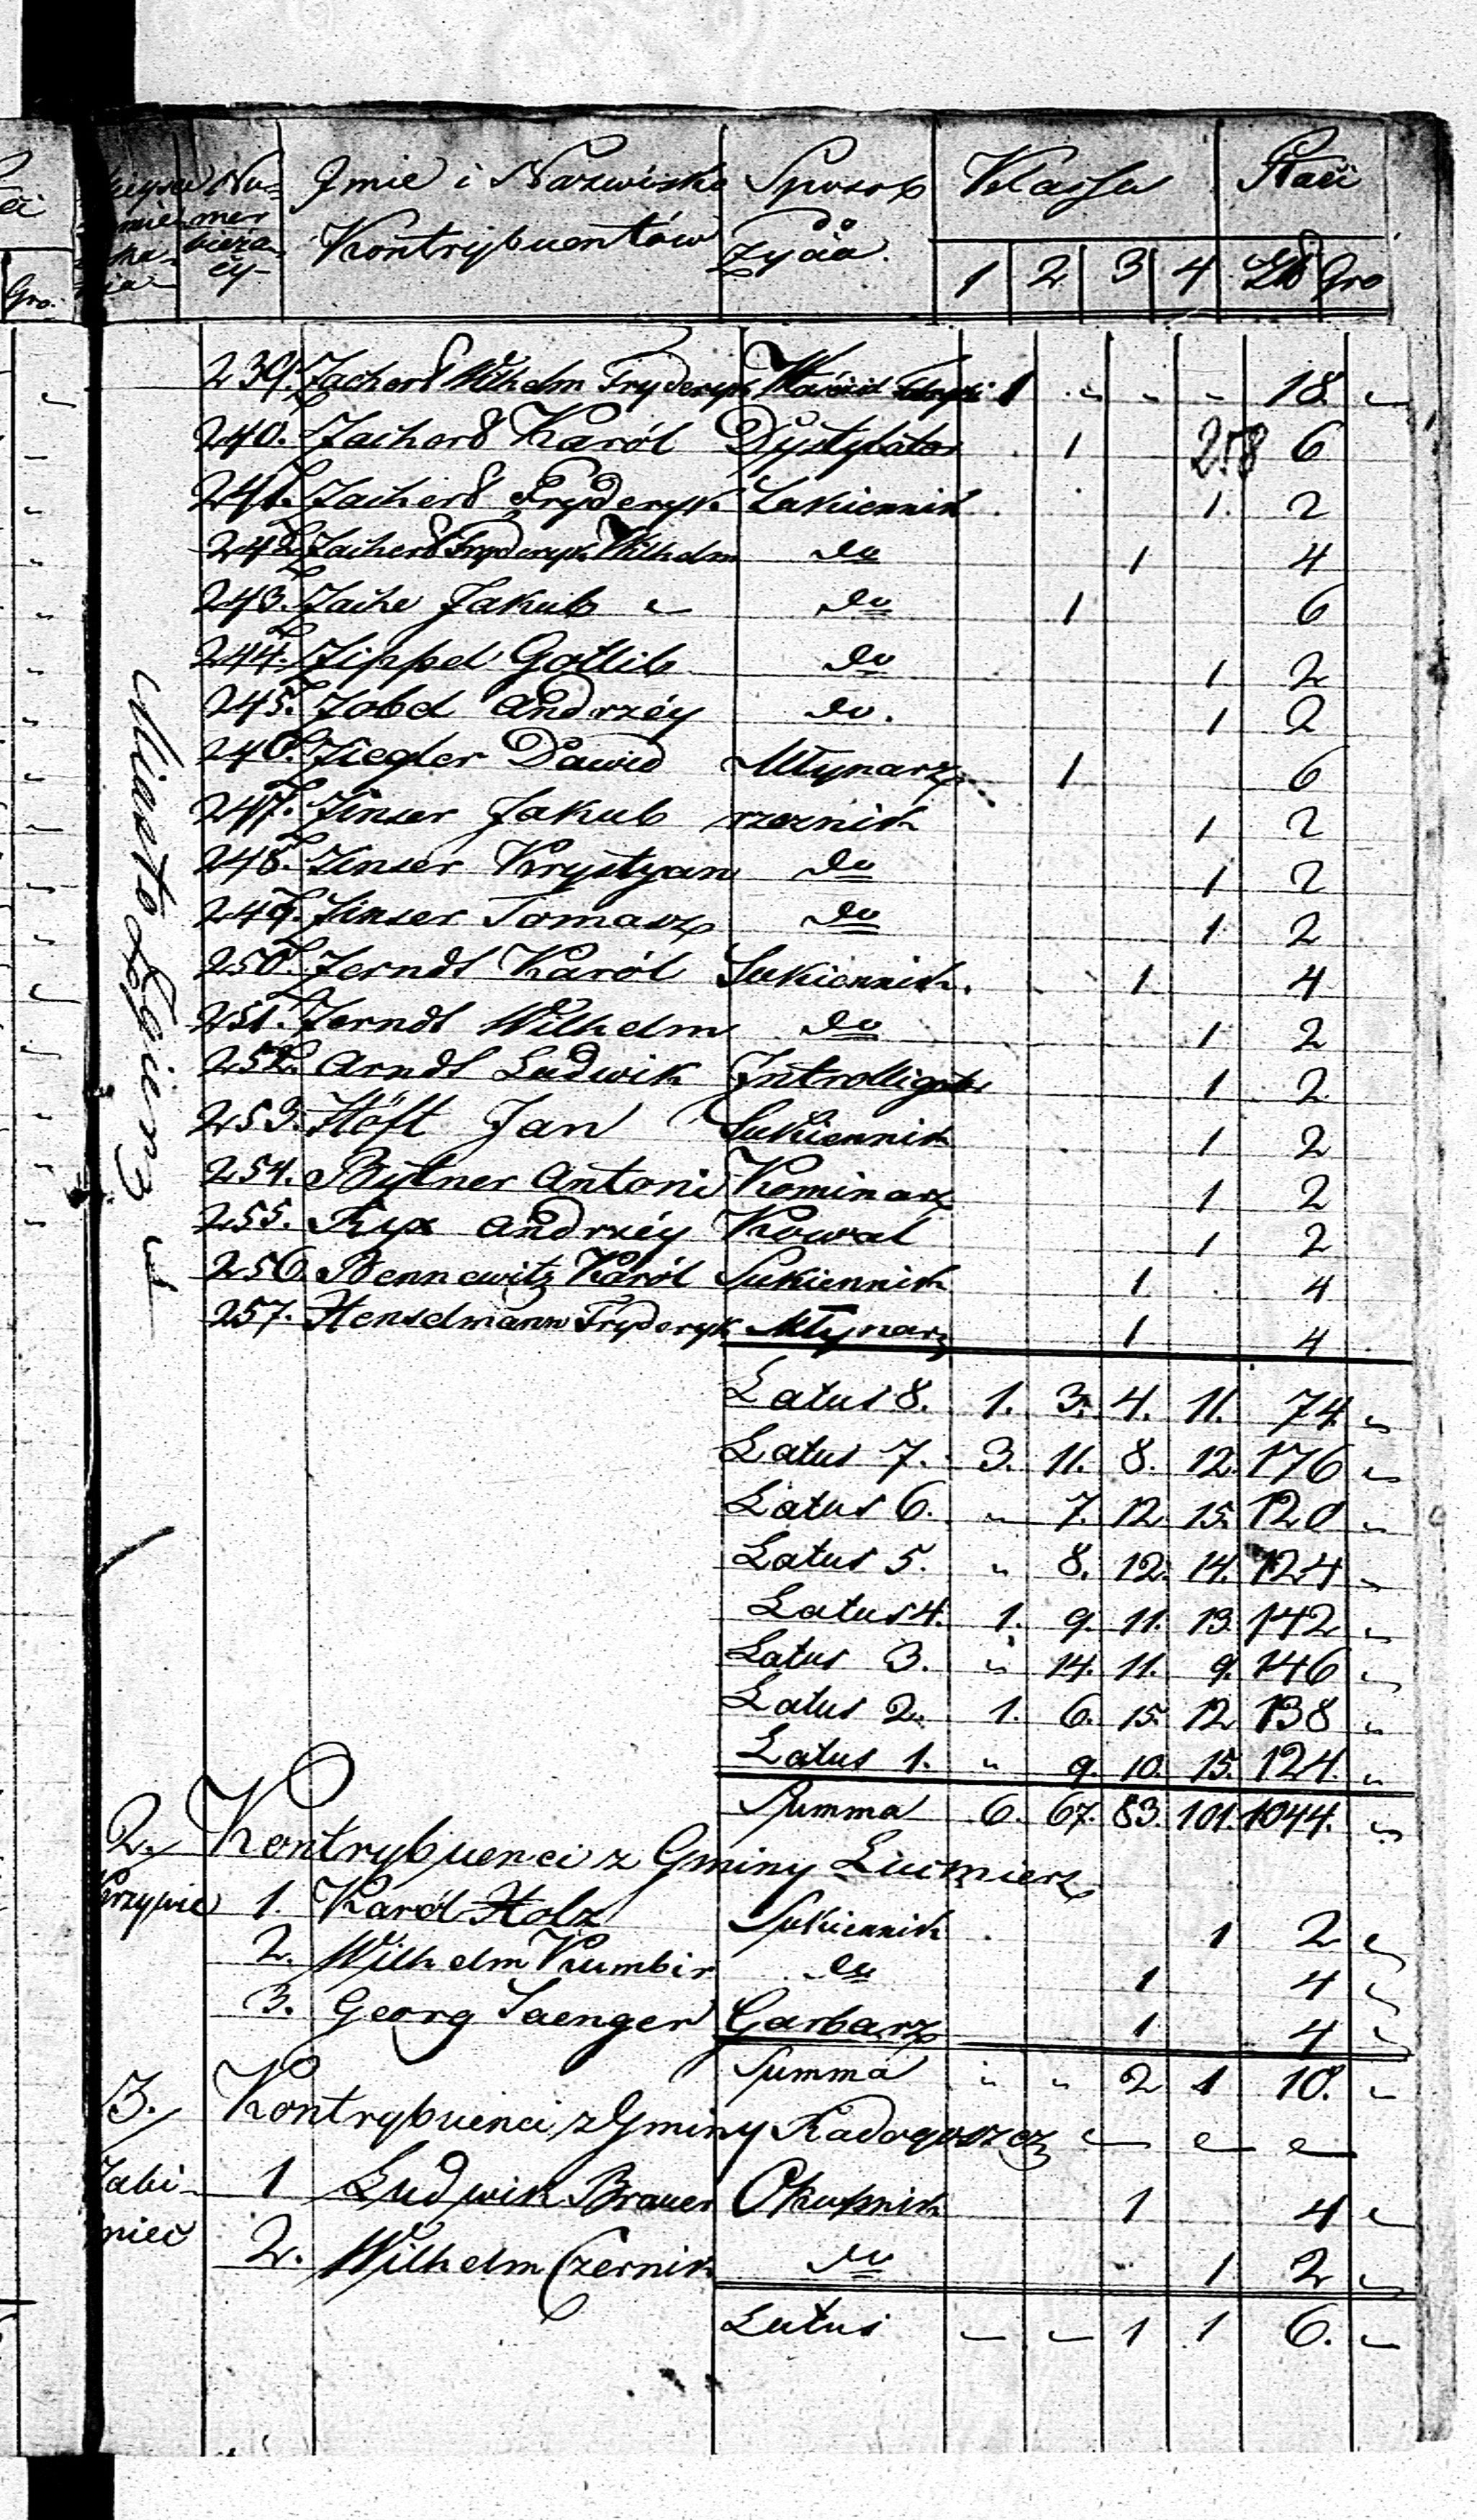 Nu= Imie i Nazwisko Sposob Klassa Płaci
mer Kontrybuentów życia.
bieżą-
cy 1 2 3 4 Zł Gro
Gro.
Miasto Zgierz
239. Zachert Wilhelm Fryderyk 1 " " " 18. "
240. Zachert Karól Dystylator 1 6
258
241. Zachert Fryderyk Sukiennik 1. 2
242. Zachert Fryderyk Wilhelm do 1 4
243. Zache Jakub do 1 6
244. Zippel Gotlib do 1 2
245. Zobel Andrzéy do. 1 2
246. Ziegler Dawid Młynarz 1 6
247. Zinser Jakub rzeznik 1 2
248. Zinser Krystyan do 1 2
249. Zinser Tomasz do 1 2
250. Zerndt Karól Sukiennik. 1 4
251. Zerndt Wilhelm do 1 2
252. Arndt Ludwik Introlligator 1 2
253. Höft Jan Sukiennik 1 2
254. Bytner Antoni Kominarz 1 2
255. Ryx Andrzéy Kowal 1 2
256. Bennewitz Karól Sukiennik 1 4
257. Henselmann Fryderyk Młynarz 1 4
Latus 8. 1. 3. 4. 11. 74. "
Latus 7. 3. 11. 8. 12. 176 "
Latus 6. " 7. 12. 15. 120 "
Latus 5. " 8. 12. 14. 124 "
Latus 4. 1. 9. 11. 13. 142 "
Latus 3. " 14. 11. 9. 146 "
Latus 2. 1. 6. 15. 12 138 "
Latus 1. " 9. 10. 15. 124. "
Summa 6. 67. 83. 101. 1044. "
2. Kontrybuenci z Gminy Lućmierz
1. Karól Holz Sukiennik 1 2 "
2. Wilhelm Kumbir do 1 4 "
3. Georg Saenger Garbarz 1 4 "
Summa " " 2 1 10. "
3. Kontrybuenci z Gminy Radogoszcz
1 Ludwik Brauer Okupnik 1 4 "
2. Wilhelm Czernik do 1 2 "
Latus — — 1 1 6. —